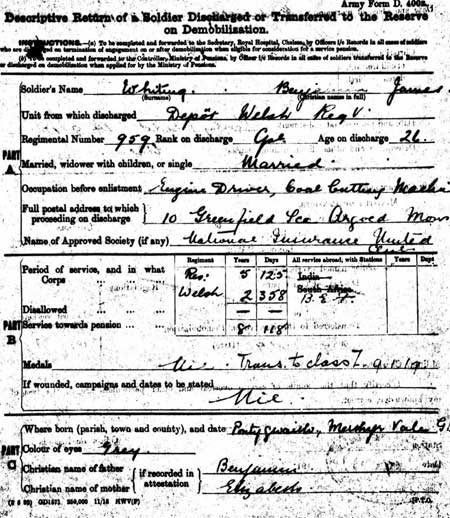 Army Form D. 400A.
Descriptive Return of a Soldier Discharged or Transferred to the Reserve
on Demobilisation.
INSTRUCTIONS.—(a) To be completed and forwarded to the Secretary, Royal Hospital, Chelsea, by Officers i/c Records in all cases of soldiers
who are discharged on termination of engagement or on or after demobilisation when eligible for consideration for a service pension.
(b) To be completed and forwarded to the Controller, Ministry of Pensions, by Officer i/c Records in all cases of soldiers transferred to the Reserve
or discharged on demobilisation when applied for by the Ministry of Pensions.
Soldier's Name Whiting Benj James
(Surname) (Christian names in full)
Unit from which discharged Depôt Welsh Regt
Regimental Number 959 Rank on discharge Cpl Age on discharge 26.
PART A
Married, widower with children, or single Married.
Occupation before enlistment Engine Driver, Coal Cutting Machin
Full postal address to which
proceeding on discharge 10 Greenfield Tce Argoed Mon
Name of Approved Society (if any) National Insurance United
Regiment Years Days All service abroad, with Stations Years Days
Period of service, and in what
Corps Res: 5 125 India
Welsh 2 358 South Africa
B.E.F.
Disallowed — —
PART B
Service towards pension 8 118
Medals Nil. Trans. to class Z 9.1.19
If wounded, campaigns and dates to be stated
Nil
Where born (parish, town and county), and date Pontygwaith, Merthyr Vale Gl
PART C
Colour of eyes Grey
Christian name of father if recorded in Benjamin
Christian name of mother attestation Elizabeth
[P.T.O.